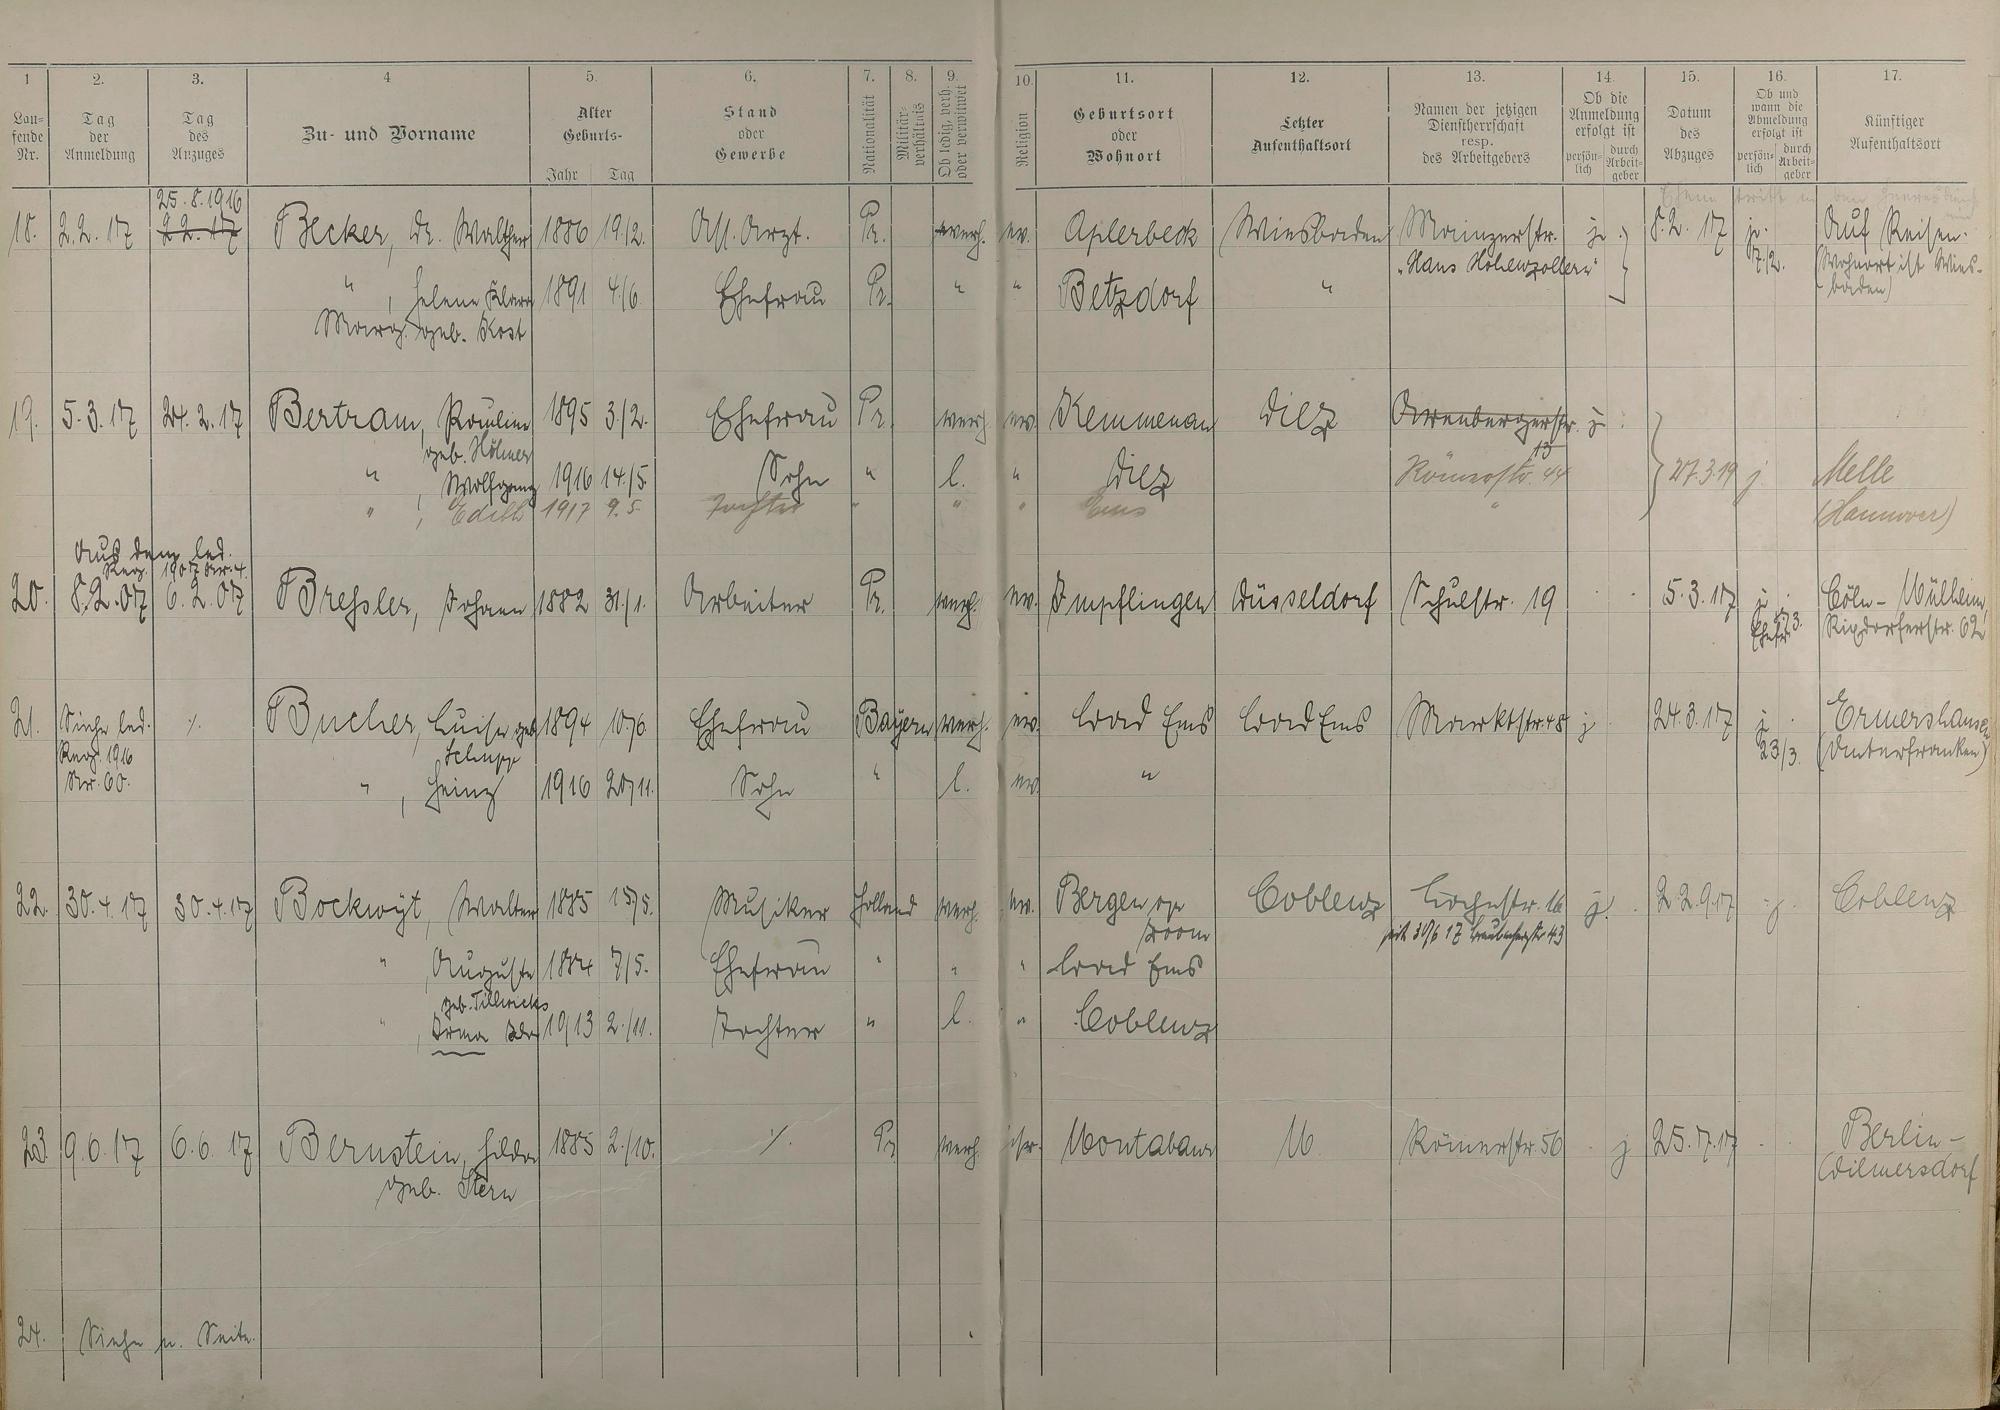 1 2. 3. 4 5. 6. 7. 8. 9. 10. 11. 12. 13. 14. 15. 16. 17.
Lau-
fende
Nr.
Tag
der
Anmeldung
Tag
des
Anzuges
Zu- und Vorname
Alter
Geburts-
Jahr Tag
Stand
oder
Gewerbe
Nationalität
Militär-
verhältnis
Ob ledig, verh.
oder verwitwet
Religion
Geburtsort
oder
Wohnort
Letzter
Aufenthaltsort
Namen der jetzigen
Dienstherrschaft
resp.
des Arbeitgebers
Ob die
Anmeldung
erfolgt ist
persön-
lich
durch
Arbeit-
geber
Datum
des
Abzuges
Ob und
wann die
Abmeldung
erfolgt ist
persön-
lich
durch
Arbeit-
geber
Künftiger
Aufenthaltsort
25.8.1916
18. 2.2.17 2.2.17 Becker, Dr. Walther 1886 19/2. Ass. Arzt. Pr. verh. ev. Aplerbeck Wiesbaden Mainzerstr. j. 8.2.17 j. Auf Reisen.
"Haus Hohenzollern" 7/2. (Wohnort ist Wies-
" , Helene Klara 1891 4/6 Ehefrau Pr. " " Betzdorf " baden)
Marg. geb. Kost
19. 5.3.17 24.2.17 Bertram, Pauline 1895 3./2. Ehefrau Pr. verh. ev. Kemmenau Diez Arenbergerstr. j.
geb. 13
" , Wolfgang 1916 14./5. Sohn " l. " Diez Römerstr. 44 27.3.19 j Melle
" , Edith 1917 9.5. Tochter " " " Ems " (Hannover)
Aus dem led.
Reg. 1907 Nr. 4.
20. 8.2.07 6.2.07 Bressler, Johann 1882 31./1. Arbeiter Pr. verh. ev. Empflingen Düsseldorf Schulstr. 19 5.3.17 j. Cöln-Mülheim,
Ehefr. 3. 62
21. Siehe led. ./. Bucher, Luise geb. 1894 10/6. Ehefrau Bayern verh. ev. Bad Ems Bad Ems Marktstr. 48 j 24.3.17 j. Ermershausen
Reg. 1916 Schupp 23/3. (Unterfranken)
Nr. 60. " , Heinz 1916 20/11. Sohn " l. ev. "
22. 30.4.17 30.4.17 Bockwyt, Walter 1885 15/5. Musiker Holland verh. ev. Bergen op Coblenz 16 j. 22.9.17 j. Coblenz
zoom seit 30/6 17 43
" , Auguste 1884 7/5. Ehefrau " " " Bad Ems
geb.
" , Irma 1913 2./11. Tochter " l. " Coblenz
23. 9.6.17 6.6.17 Bernstein, Hilda 1885 2./10. ./. Pr. verh. isr. Montabaur M. Römerstr. 56 j 25.7.17 Berlin-
geb. Stern Wilmersdorf
24. Siehe n. Seite.